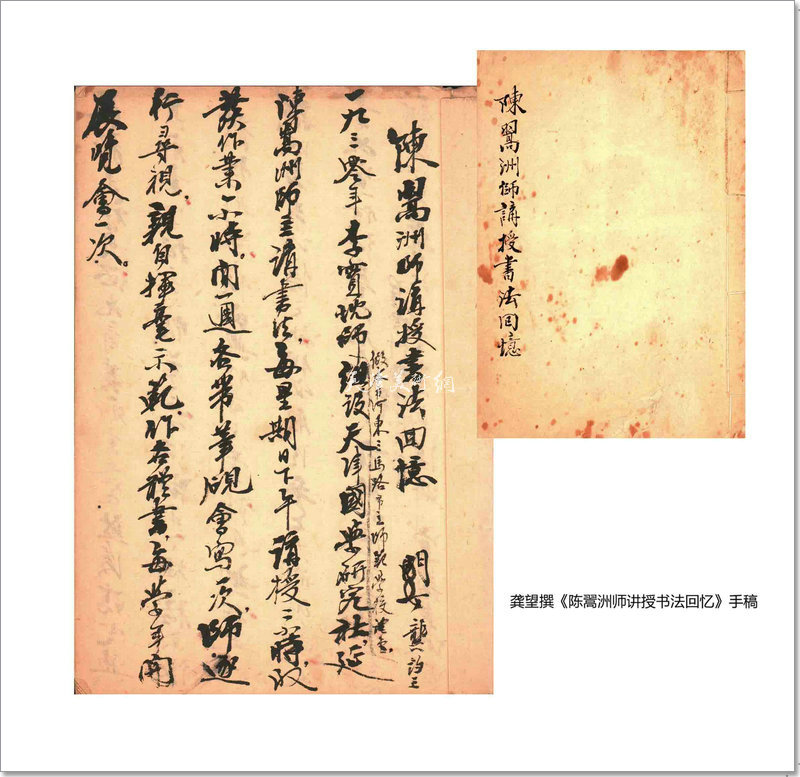 陳翯洲師講授書法回憶
陳翯洲師講授書法回憶 門 龔望
一九三零年李實忱師創設天津國學研究社,延
河東三馬路市立師範學校
陳翯洲師主講書法,每星期日下午講授二小時,改
發作業一小時,間一週各带筆硯會寫一次,師逐
行尋視,親自揮毫示範,作各體書,每學年開
展覽會一次。
天津美術網
龚望撰《陈翯洲师讲授书法回忆》手稿